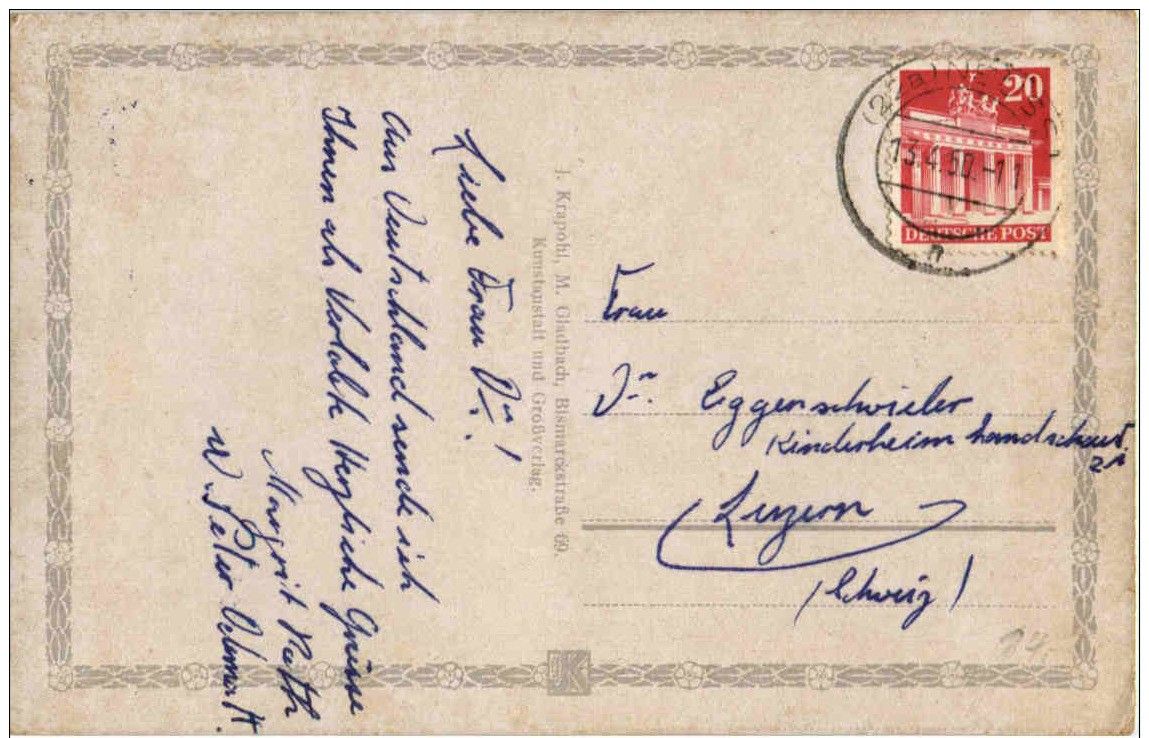 Liebe Frau Dr.!
Aus Deutschland sende ich
Ihnen als Verlobte Herzliche Grüsse
Margrit Rüth
u. Peter
J. Krapohl, M. Gladbach, Bismarckstraße 69.
Kunstanstalt und Großverlag.
20
DEUTSCHE POST
13.4.50.-11
Frau
Dr. Eggenschwieler
Kinderheim
Luzern
(Schweiz)
JK